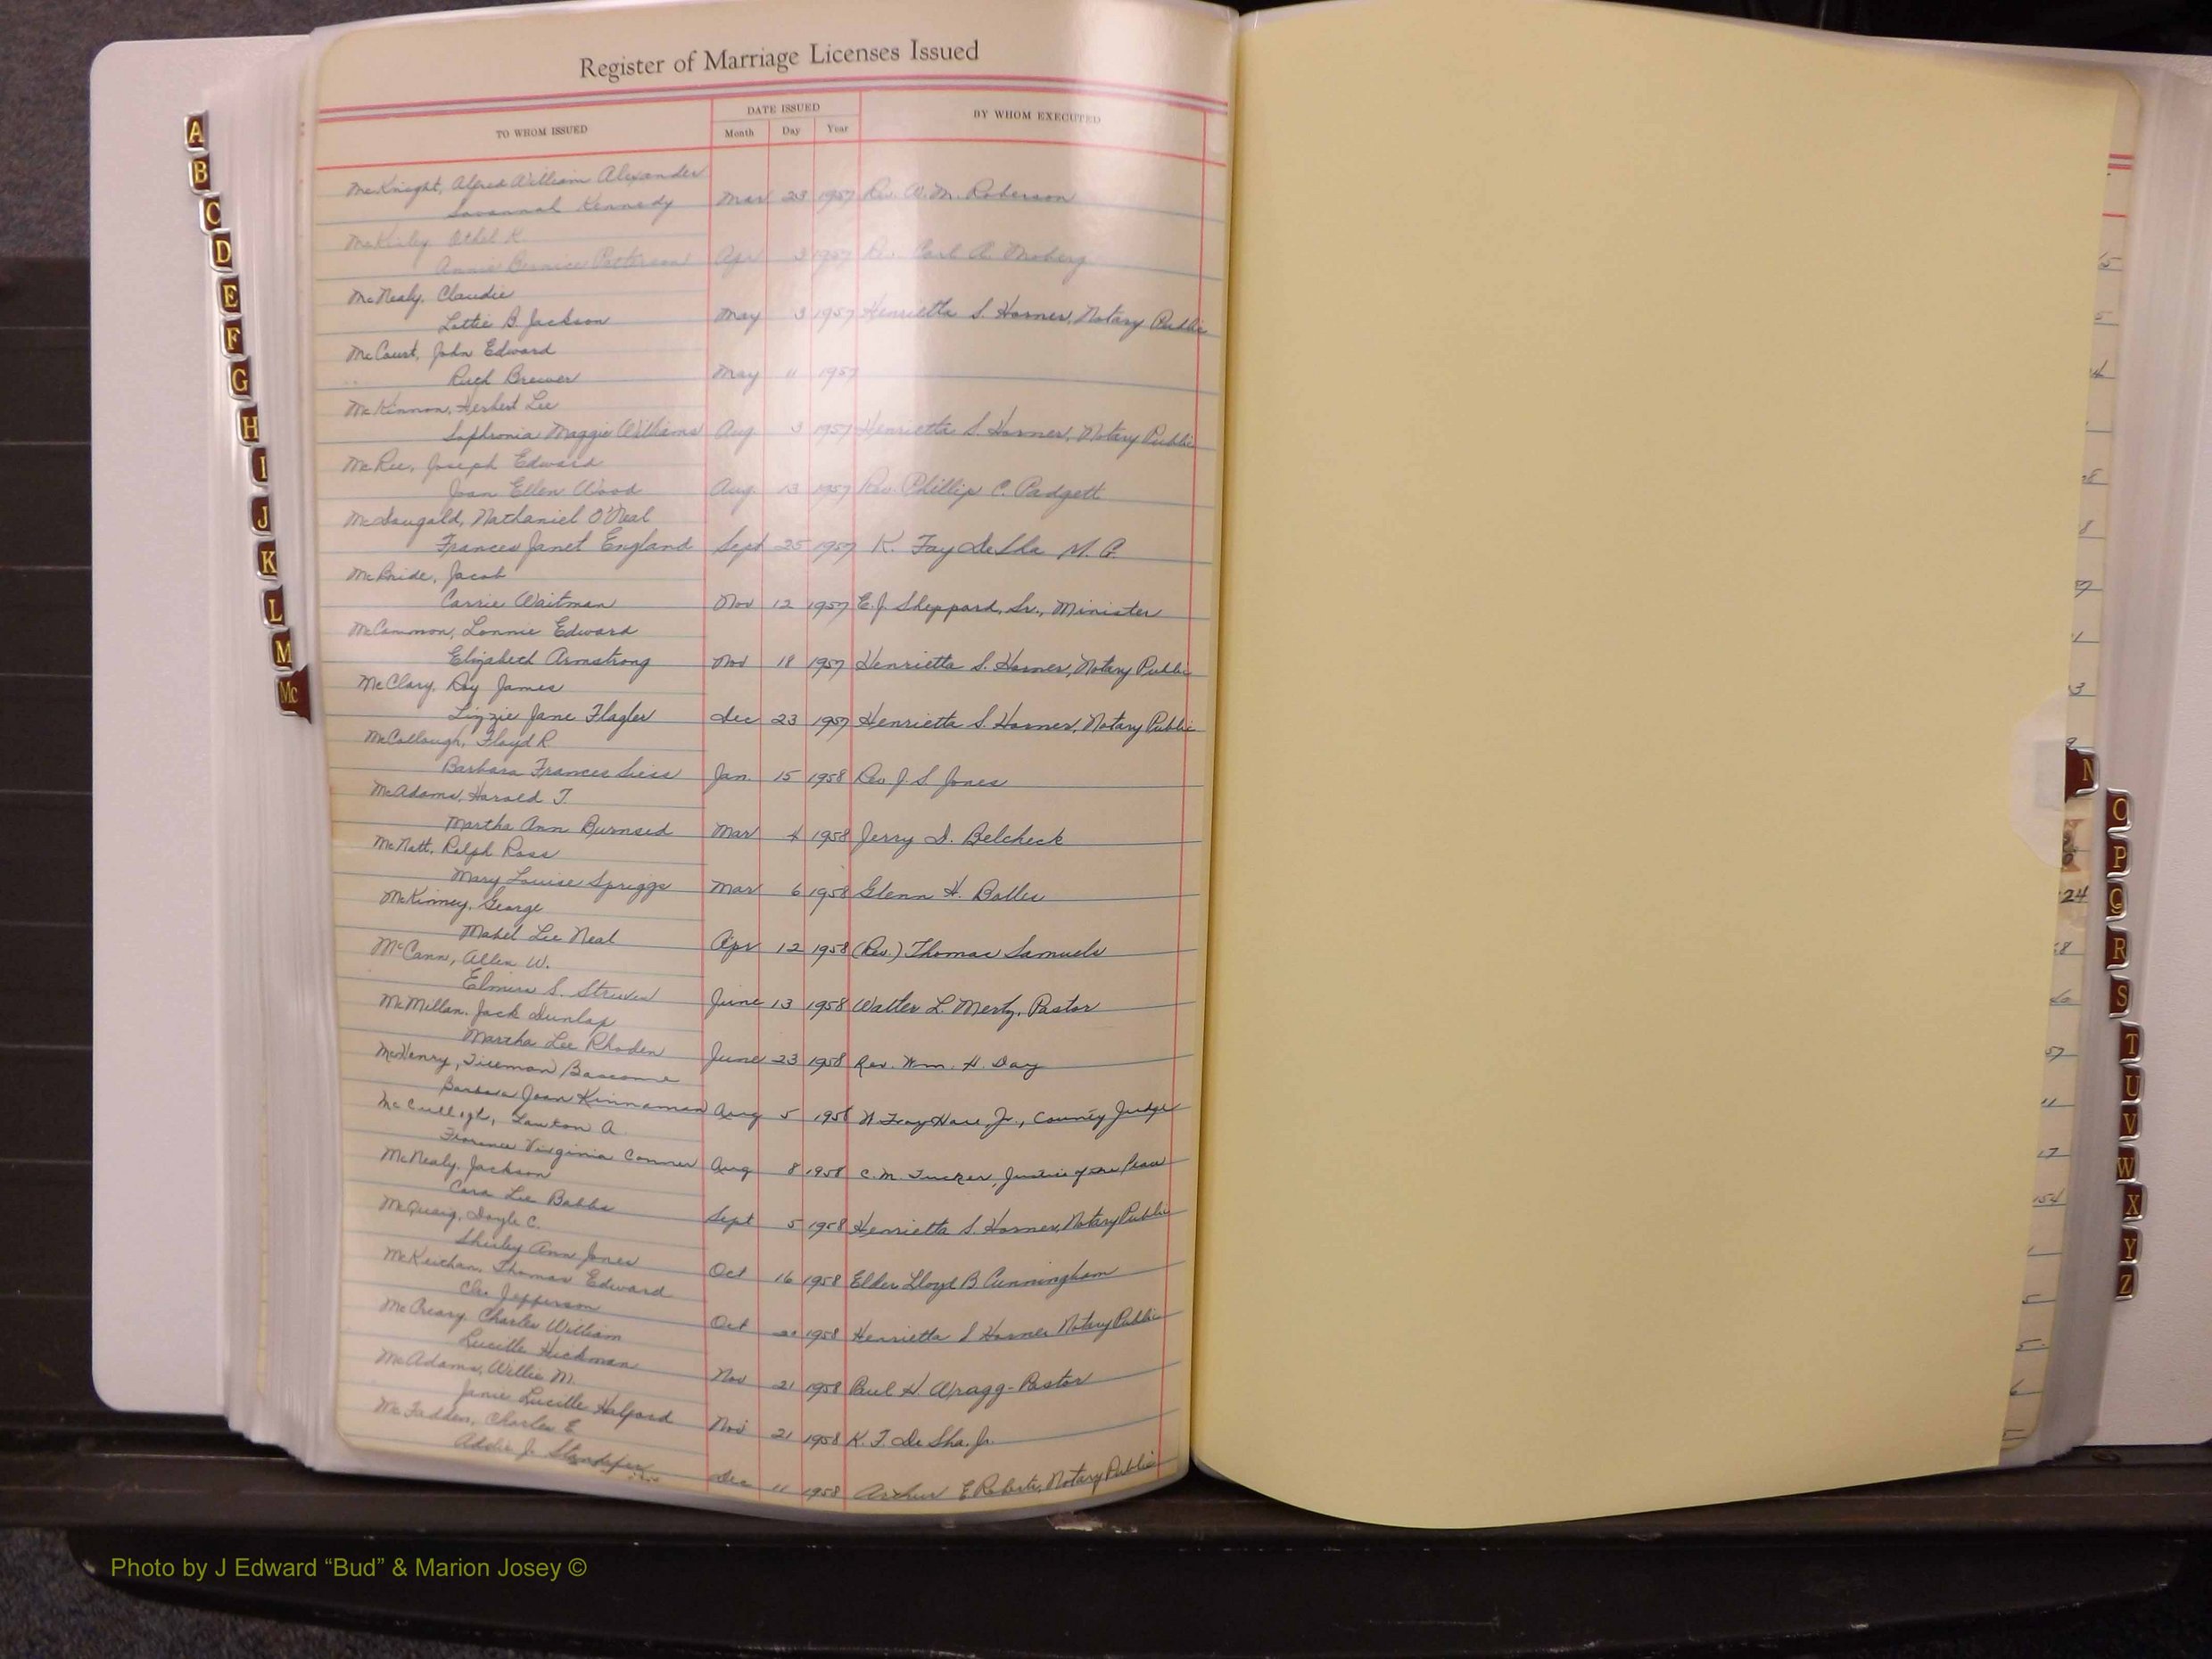 Register of Marriage Licenses Issued
TO WHOM ISSUED
DATE ISSUED
Month Day Year
BY WHOM EXECUTED
McKnight, Alfred William Alexander
Savannah Kennedy Mar 23 1957 Rev. W. M. Roberson
McKinley, Othel K.
Annie Bernice Patterson Apr 3 1957 Rev. Carl A. Moberg
McNealy, Claudie
Lottie B. Jackson May 3 1957 Henrietta S. Horner, Notary Public
McCourt, John Edward
Ruth Brewer May 11 1957
McKinnon, Herbert Lee
Sophronia Maggie Williams Aug. 3 1957 Henrietta S. Horner, Notary Public
McRee, Joseph Edward
Joan Ellen Wood Aug. 13 1957 Rev. Phillip C. Padgett
McDougald, Nathaniel O'Neal
Frances Janet England Sept 25 1957 K. Fay DeSha M. G.
McBride, Jacob
Carrie Waitman Nov 12 1957 E. J. Sheppard, Sr., Minister
McCammon, Lonnie Edward
Elizabeth Armstrong Nov 18 1957 Henrietta S. Horner, Notary Public
McClary, Roy James
Lizzie Jane Flagler Dec 23 1957 Henrietta S. Horner, Notary Public
McCollough, Floyd R.
Barbara Frances Jan. 15 1958 Rev J. S. Jones
McAdams, Harold T.
Martha Ann Burnsed Mar 4 1958 Jerry D. Belcheck
McNatt, Ralph Ross
Mary Louise Spriggs Mar 6 1958 Glenn H.
McKinney, George
Mabel Lee Neal Apr 12 1958 (Rev.) Thomas Samuels
McCann, Allen W.
Elmira S. June 13 1958 Walter L. Mertz, Pastor
McMillan, Jack Dunlap
Martha Lee Rhoden June 23 1958 Rev. Wm. H. Day
McHenry, Tillman Bascome
Barbara Joan Kinnaman Aug 5 1958 W Fay Hare, Jr., County Judge
Lawton A.
Florence Virginia Conner Aug 8 1958 C. M. Tucker, Justice of the Peace
McNealy, Jackson
Cora Lee Bobbs Sept 5 1958 Henrietta S. Horner, Notary Public
McQuaig, Doyle C.
Shirley Ann Jones Oct 16 1958 Elder Lloyd B Cunningham
McKeithan, Thomas Edward
Jefferson Oct 1958 Henrietta S Horner Notary Public
McCreary, Charles William
Lucille Hickman Nov 21 1958 Paul H. Wragg - Pastor
McAdams, Willie M.
Janie Lucille Halford Nov 21 1958 K. F. De Sha, Jr.
McFadden, Charles E.
Addie J. Dec 11 1958 Arthur E Roberts, Notary Public
A
B
C
D
E
F
G
H
I
J
K
L
M
Mc
N
O
P
Q
R
S
T
U
V
W
X
Y
Z
24
Photo by J Edward “Bud” & Marion Josey ©